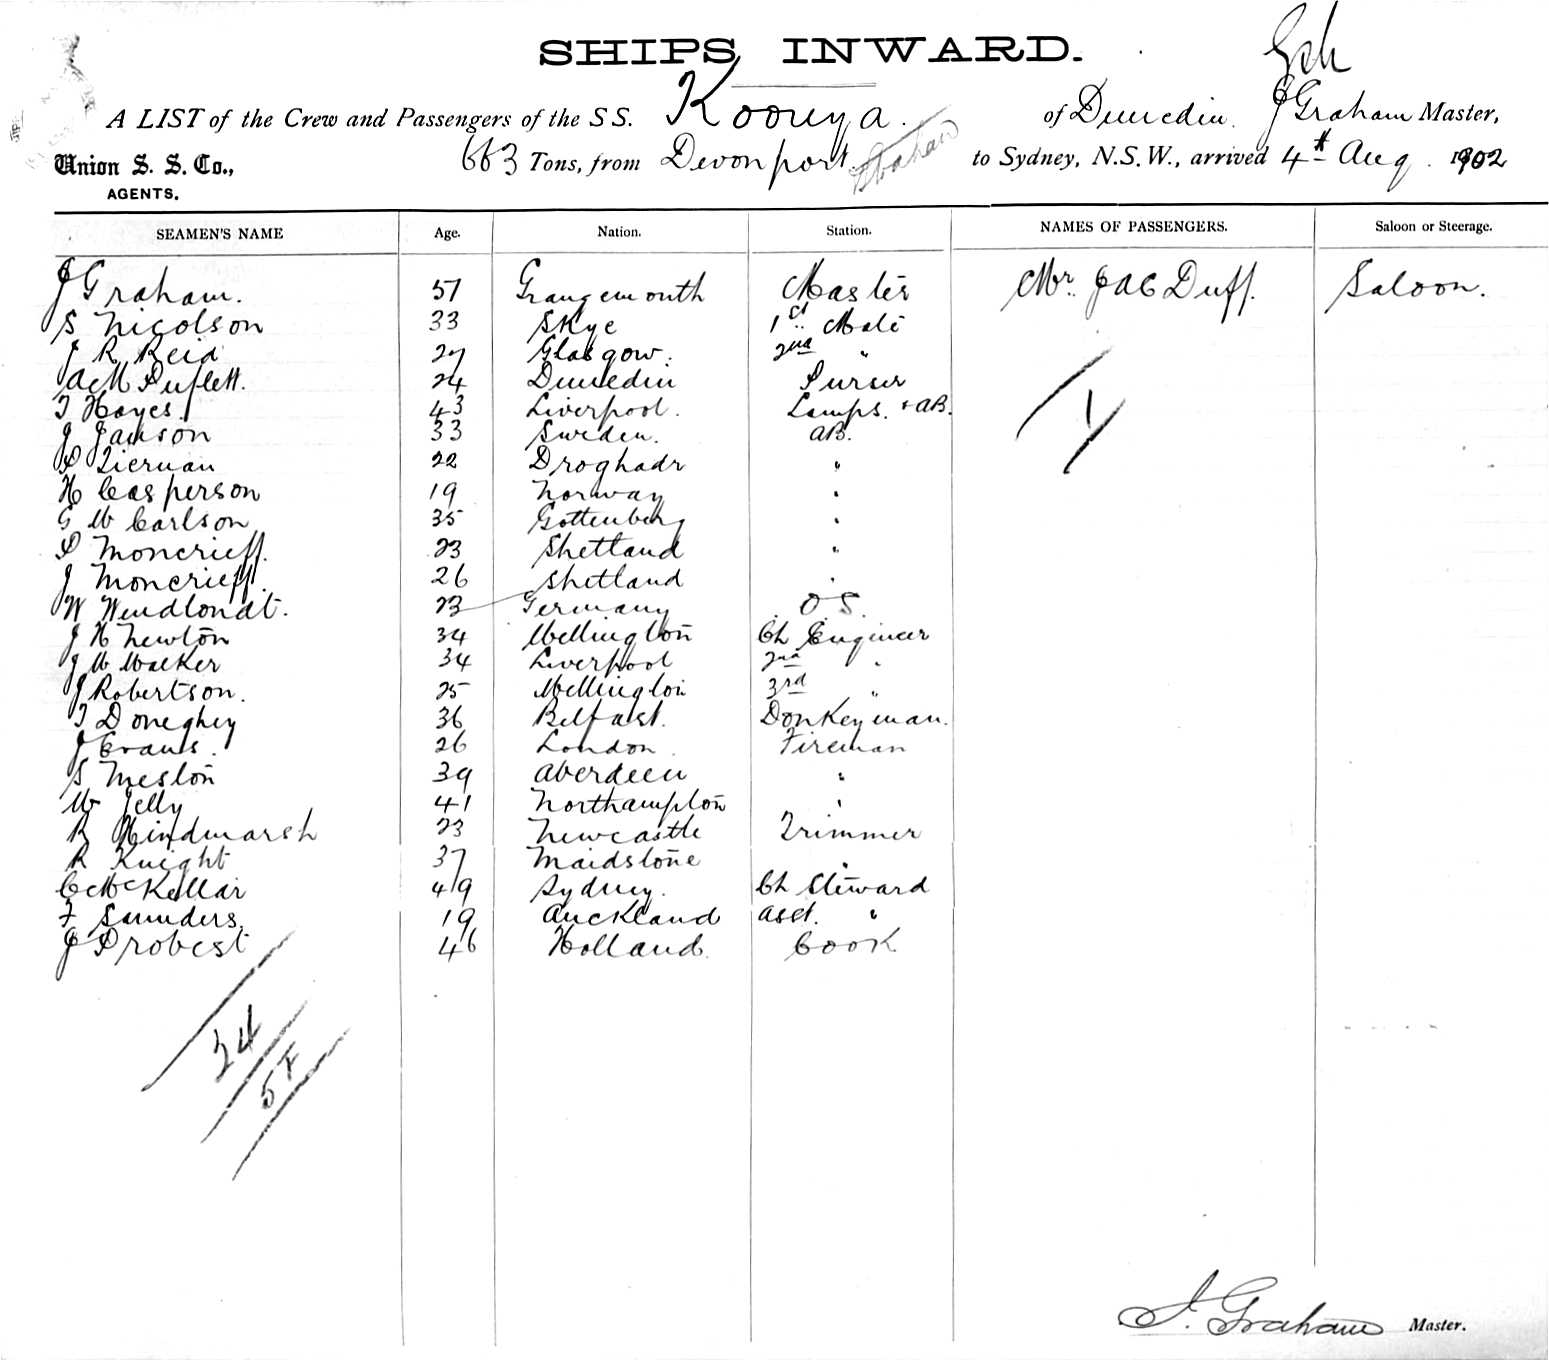 SHIPS INWARD.
A LIST of the Crew and Passengers of the SS. Koonya. of Dunedin. J Graham Master,
Union S. S. Co., 663 Tons, from Devonport. Strahan to Sydney, N.S.W., arrived 4th Aug. 1902
AGENTS.
SEAMEN'S NAME Age. Nation. Station. NAMES OF PASSENGERS. Saloon or Steerage.
J Graham. 51 Grangemouth Master Mr. J A C Duff. Saloon.
S Nicolson 33 Skye 1st Mate
J R Reid 27 Glasgow. 2nd "
24 Dunedin Purser
T Hayes. 43 Liverpool. Lamps. + AB.
J Janson 33 Sweden. AB.
P Tiernan 22 Droghadr "
H Casperson 19 Norway "
G W Carlson 35 Gottenberg "
P Moncrieff. 23 Shetland "
J Moncrieff. 26 Shetland "
W Wendlondt. 23 Germany O S.
J H Newton 34 Wellington Ch Engineer
J W Walker 34 Liverpool 2nd "
J Robertson. 25 Wellington 3rd "
T Doneghey 36 Belfast. Donkeyman.
J Evans. 26 London Fireman
S Meston 39 Aberdeen "
W Jelly 41 Northampton "
R Hindmarsh 23 Newcastle Trimmer
R Knight 37 Maidstone "
C McKellar 49 Sydney. Ch Steward
F Saunders. 19 Auckland Asst. "
J Probest 46 Holland. Cook
1
24
5F
J. Graham Master.